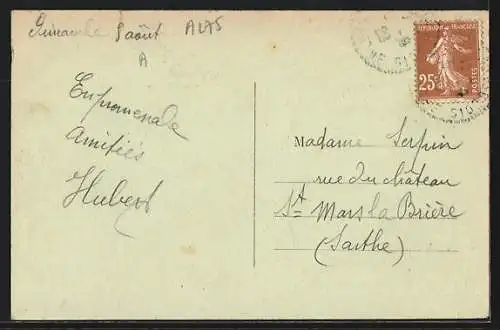 8 août ALA5
A
En promenade
Amitiés
Hubert
REPUBLIQUE FRANÇAISE
25c
POSTES
Madame Serpin
rue du château
St Mars la Brière
(Sarthe)